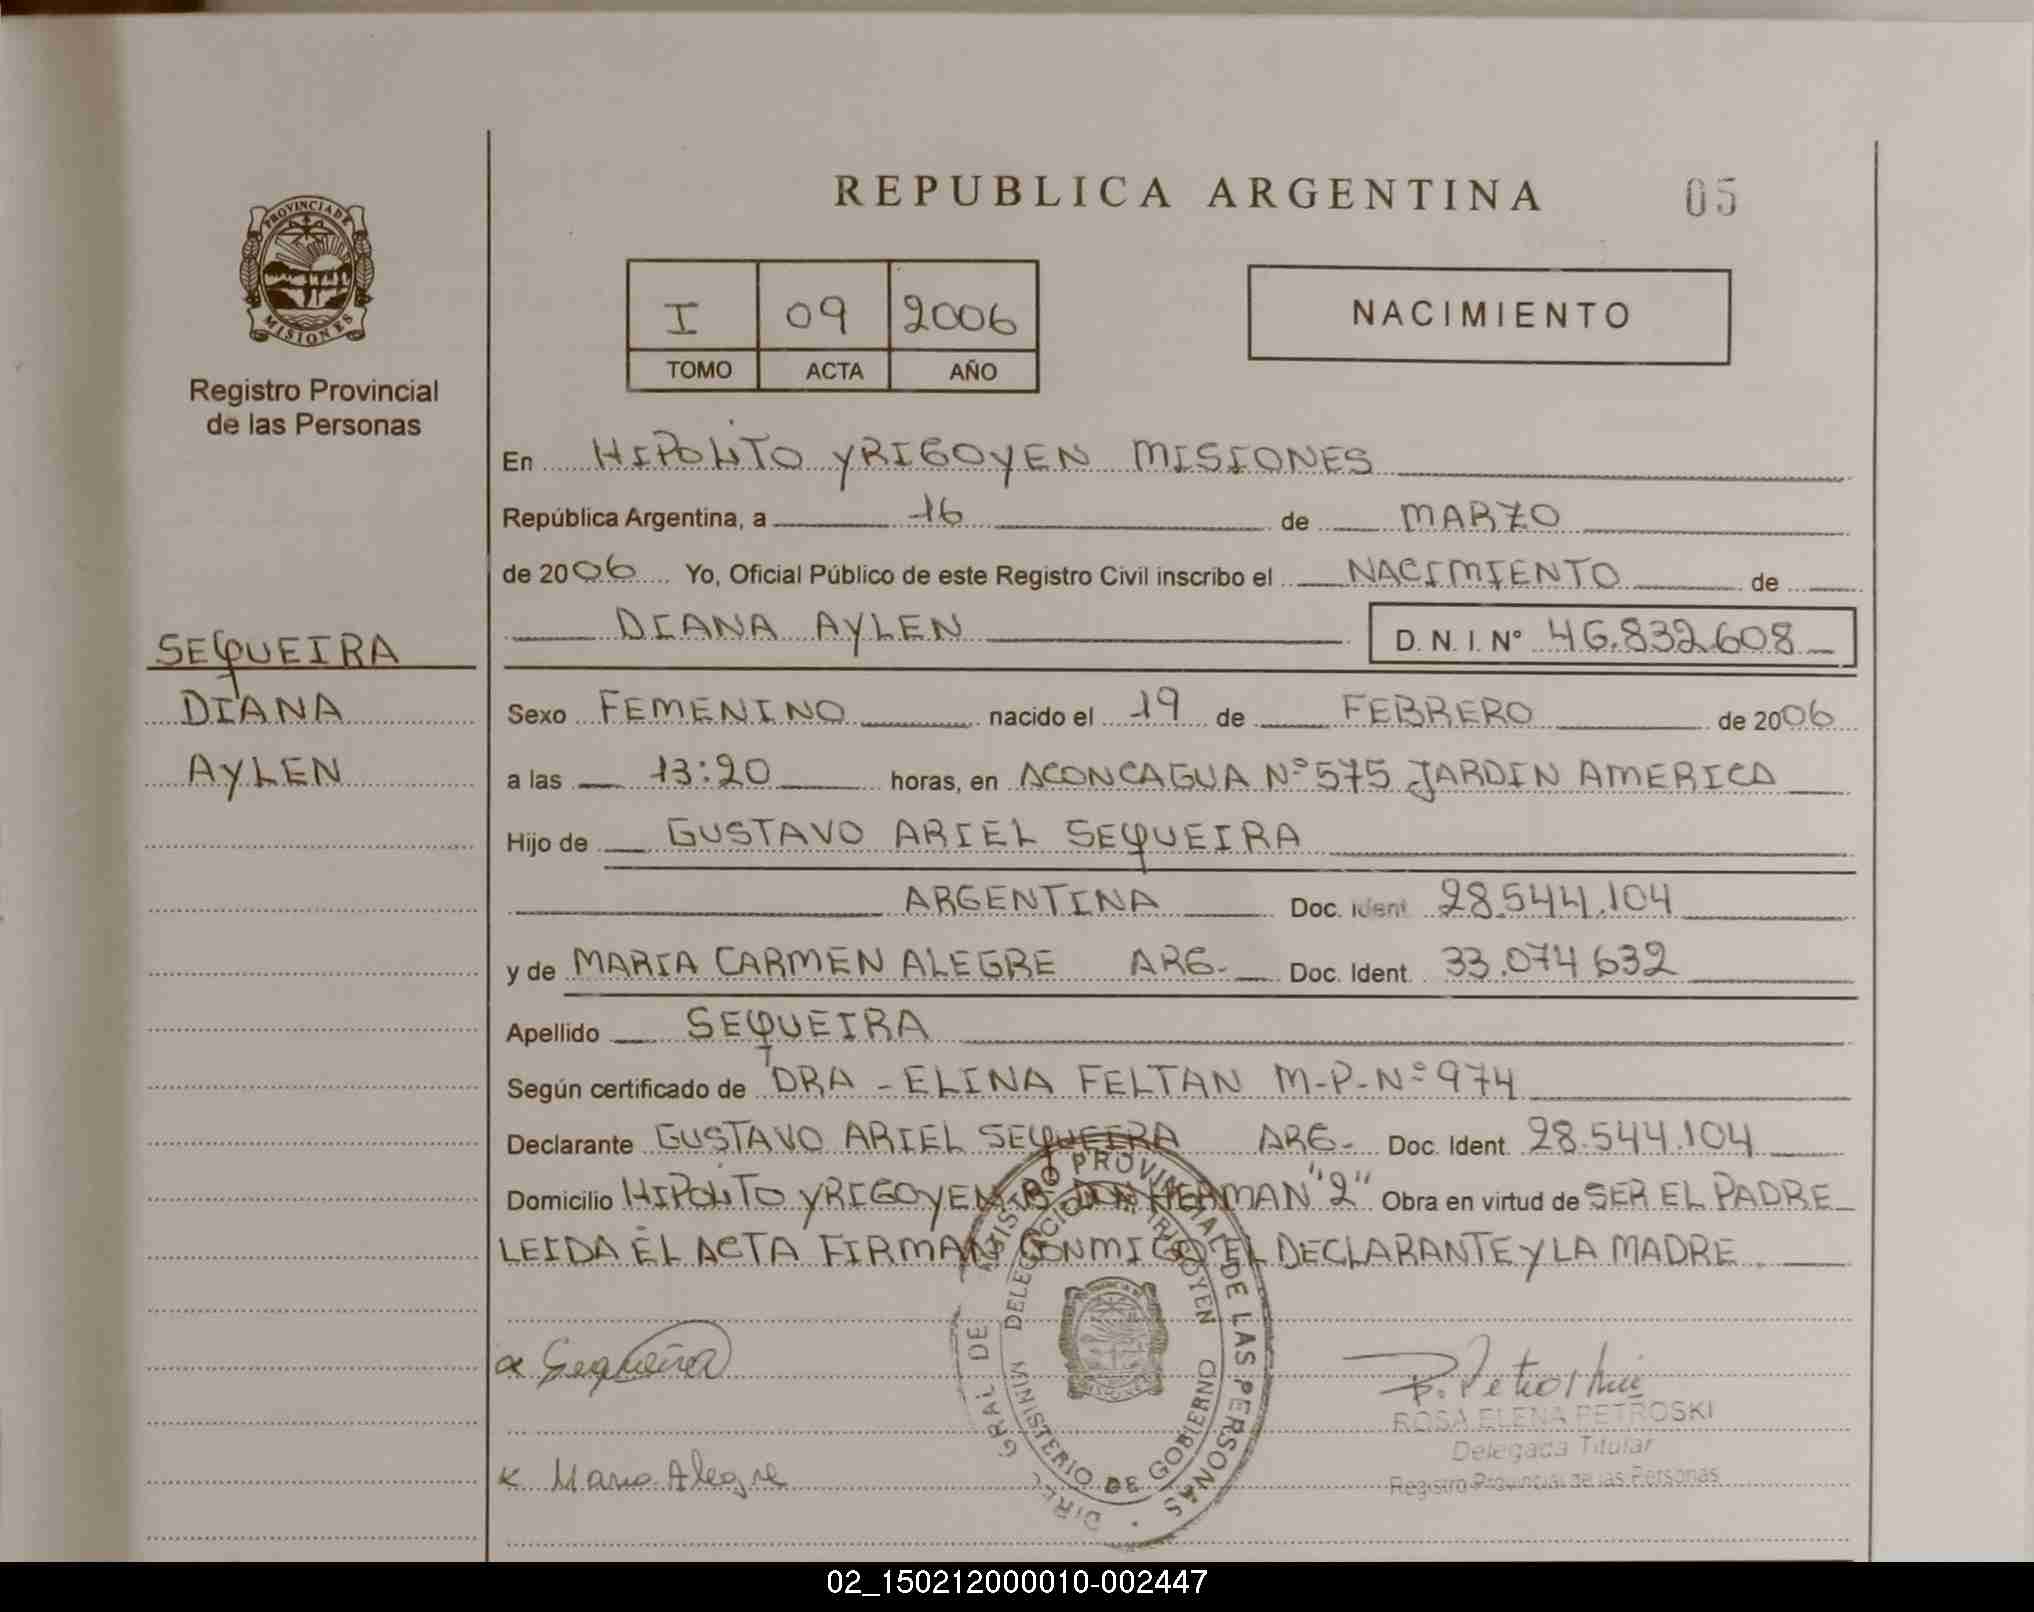 REPUBLICA ARGENTINA 05
PROVINCIA DE
MISIONES
Registro Provincial
de las Personas
I 09 2006
TOMO ACTA AÑO
NACIMIENTO
En HIPOLITO YRIGOYEN MISIONES
República Argentina, a 16 de MARZO
de 2006 Yo, Oficial Público de este Registro Civil inscribo el NACIMIENTO de
DIANA AYLEN D. N. I. Nº 46.832.608
SEQUEIRA
DIANA
AYLEN
Sexo FEMENINO nacido el 19 de FEBRERO de 2006
a las 13:20 horas, en ACONCAGUA Nº 575 JARDIN AMERICA
Hijo de GUSTAVO ARIEL SEQUEIRA
ARGENTINA Doc. Ident. 28.544.104
y de MARIA CARMEN ALEGRE ARG. Doc. Ident. 33.074632
Apellido SEQUEIRA
Según certificado de DRA - ELINA FELTAN M-P-Nº 974
Declarante GUSTAVO ARIEL SEQUEIRA ARG- Doc. Ident. 28.544.104
Domicilio HIPOLITO YRIGOYEN Bº DON HERMAN "2" Obra en virtud de SER EL PADRE
LEIDA EL ACTA FIRMAN CONMIGO EL DECLARANTE Y LA MADRE
DIREC. GRAL DE REGISTRO PROVINCIAL DE LAS PERSONAS
DELEGACION H. IRIGOYEN
MINISTERIO DE GOBIERNO
Sequeira
R. Petroski
ROSA ELENA PETROSKI
Delegada Titular
Registro Provincial de las Personas
Maria Alegre
02_150212000010-002447